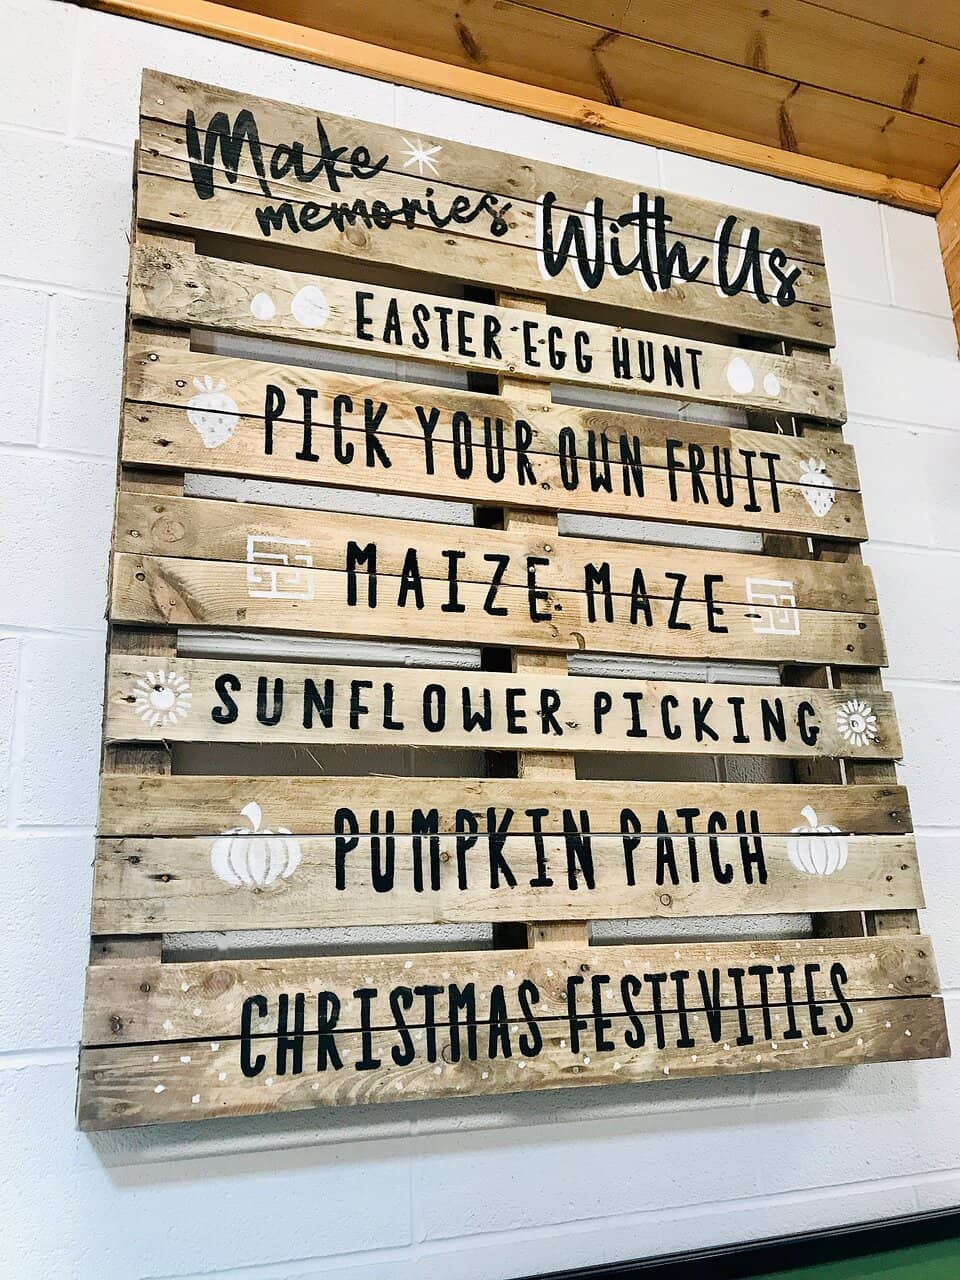 Make
memories With Us
EASTER EGG HUNT
PICK YOUR OWN FRUIT
MAIZE MAZE
SUNFLOWER PICKING
PUMPKIN PATCH
CHRISTMAS FESTIVITIES